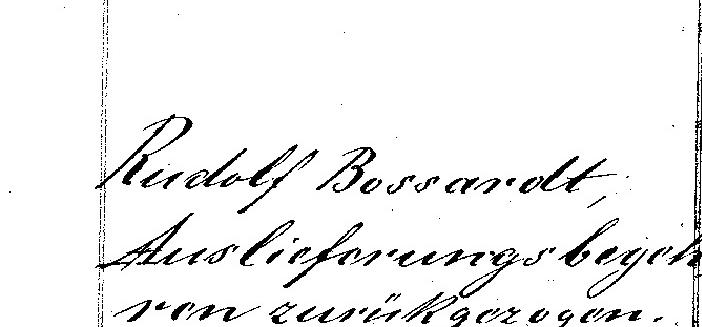 Rudolf Bossardt,
Auslieferungsbegeh
ren zurückgezogen.